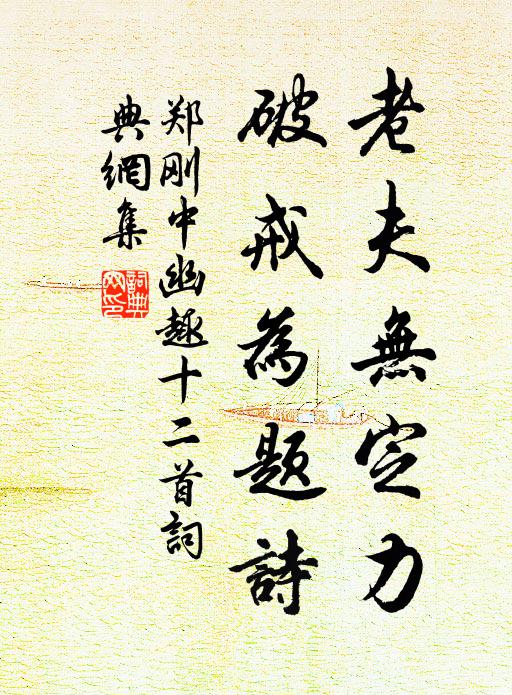 老夫無定力
破戒為题詩
郑刚中幽趣十二首詞
典網集
詞典
网印